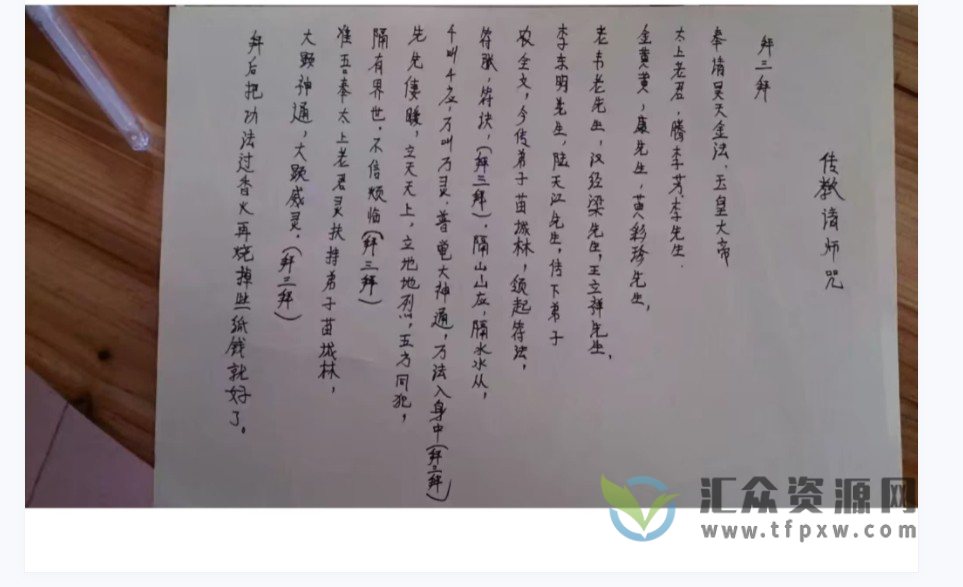 传教请师咒
拜三拜
奉请昊天金法、玉皇大帝
太上老君，腾李芳李先生.
金黄黄，康先生，黄彩珍先生，
老韦老先生，汉经梁先生，王立祥先生，
李东明先生，陆天江先生，传下弟子
农全文，今传弟子苗城林，领起符法，
符脉，符诀，(拜三拜)，隔山山应，隔水水从，
千叫千应，万叫万灵.普电大神通，万法入身中(拜三拜)
先先偻暖，立天天上，立地地烈，五方同犯，
隔有界世，不信烦临(拜三拜)
准吾奉太上老君灵扶持弟子苗城林，
大显神通，大显威灵，(拜三拜)
拜后把功法过香火再烧掉些纸钱就好了。
汇众资源网
www.tfpxw.com